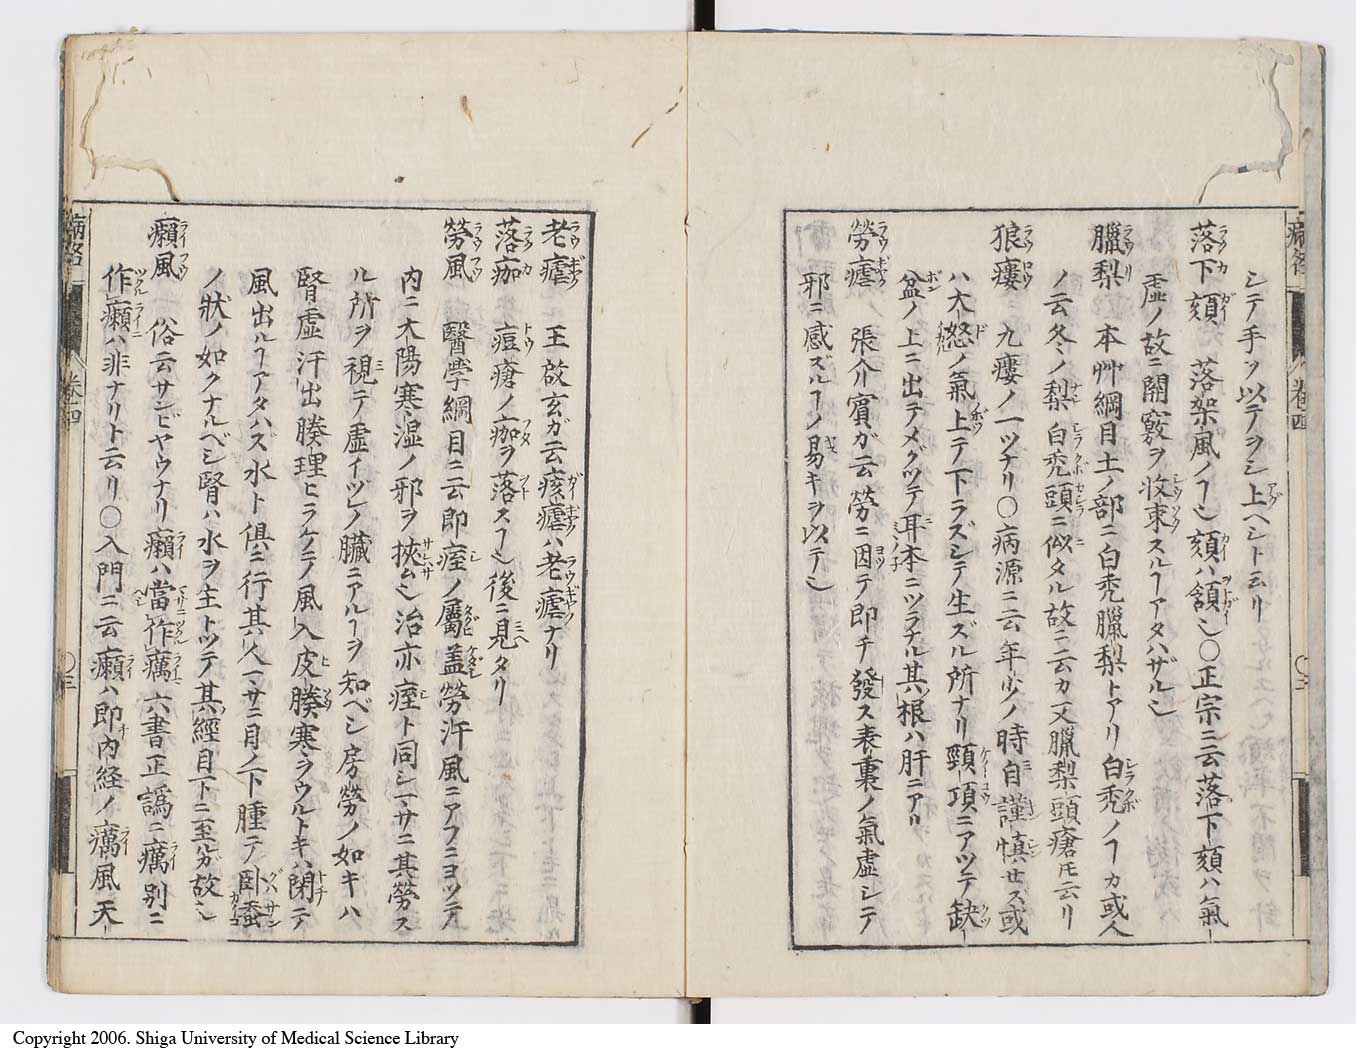 シテ手ヲ以テヲシ上ヘシト云リ
落下頦　落架風ノヿ也頦ハ頷也〇正宗ニ云落下頦ハ氣
虚ノ故ニ關竅ヲ收束スルヿアタハザル也
臘梨　本艸綱目土ノ部ニ白禿臘梨トアリ白禿ノヿカ或人
ノ云冬ノ梨白禿頭ニ似タル故ニ云カ又臘梨頭瘡トモ云リ
狼瘻　九瘻ノ一ツナリ〇病源ニ云年少ノ時自謹慎セス或
ハ大怒ノ氣上テ下ラズシテ生ズル所ナリ頸項ニアツテ缺
盆ノ上ニ出テメグツテ耳本ニツラナル其根ハ肝ニアリ
勞瘧　張介賓ガ云勞ニ因テ即チ發ス表裏ノ氣虚シテ
邪ニ感ズルヿノ易キヲ以テ也
病名
卷四
老瘧　王啟玄ガ云痎瘧ハ老瘧ナリ
落痂　痘瘡ノ痂ヲ落スヿ也後ニ見タリ
勞風　醫學綱目ニ云即痓ノ屬蓋勞汗風ニアフニヨツテ
内ニ太陽寒湿ノ邪ヲ挾ム也治亦痓ト同シ一サニ其勞ス
ル所ヲ視テ虚イヅレノ臓ニアルヿヲ知ベシ房勞ノ如キハ
腎虚汗出腠理ヒラケテ風入皮腠寒ヲウルトキハ閉テ
風出ルヿアタハズ水ト倶ニ行其人マサニ目ノ下腫テ臥蚕
ノ狀ノ如クナルベシ腎ハ水ヲ主トツテ其經目下ニ至ルガ故也
癩風　俗云サンビヤウナリ癩ハ當作癘六書正譌ニ癘別ニ
作癩ハ非ナリト云リ〇入門ニ云癩ハ即内経ノ癘風天
病名
卷四
〇三